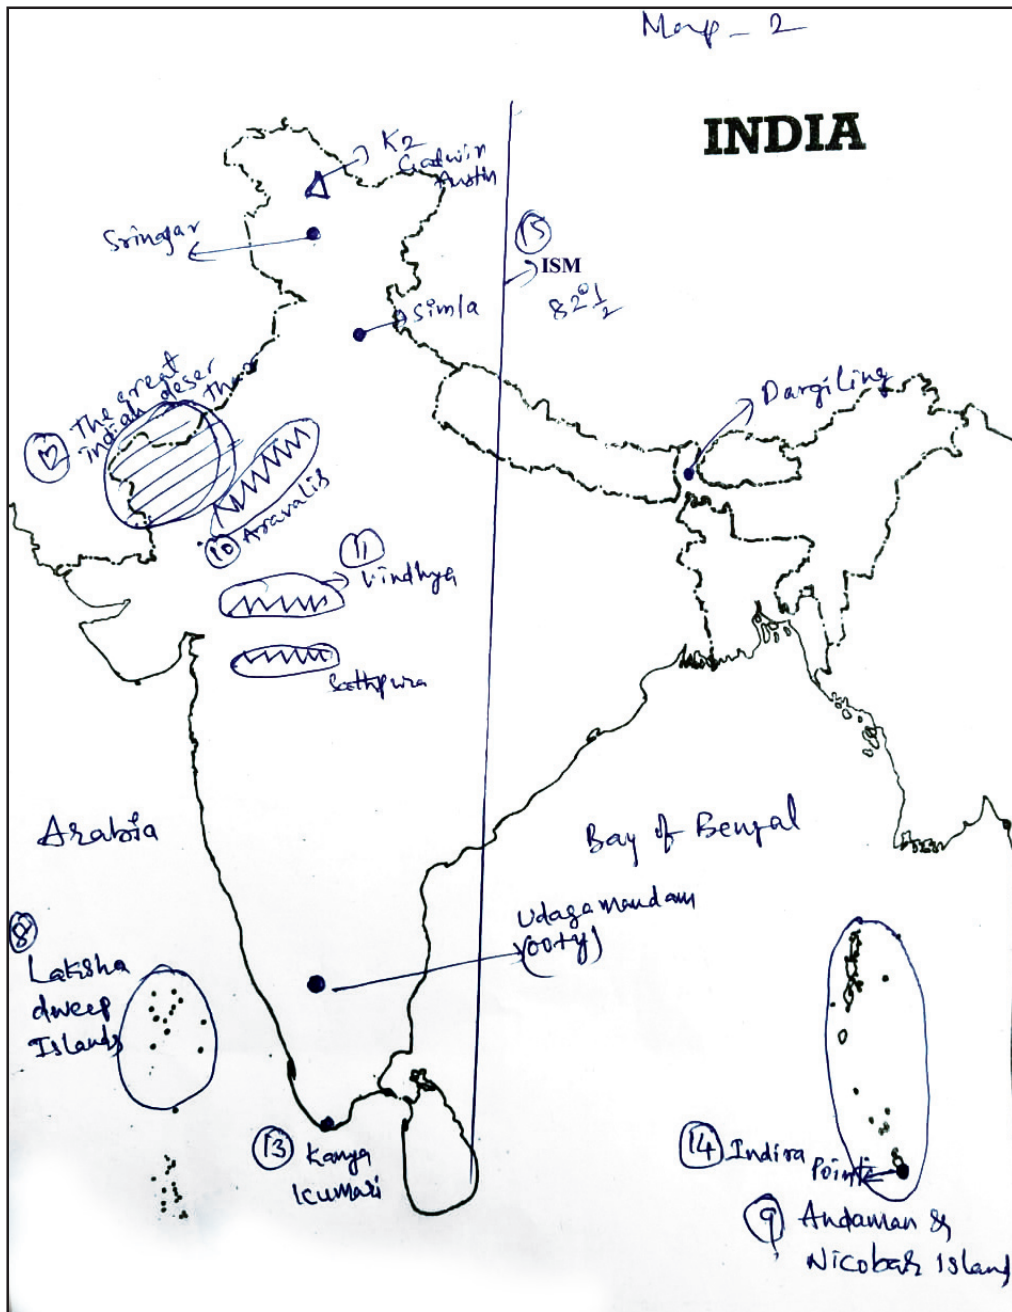 Map - 2
INDIA
K2
Gadwin
Austin
Srinagar
15
ISM
82°½
Simla
The great
indian deser
Thar
12
Dargiling
10
Aravalis
11
Vindhya
Sathpura
Arabia
Bay of Bengal
Udagamandam
(ooty)
8
Laksha
dweep
Islands
13
Kanya
Kumari
14
Indira
Point
9
Andaman &
Nicobar Island